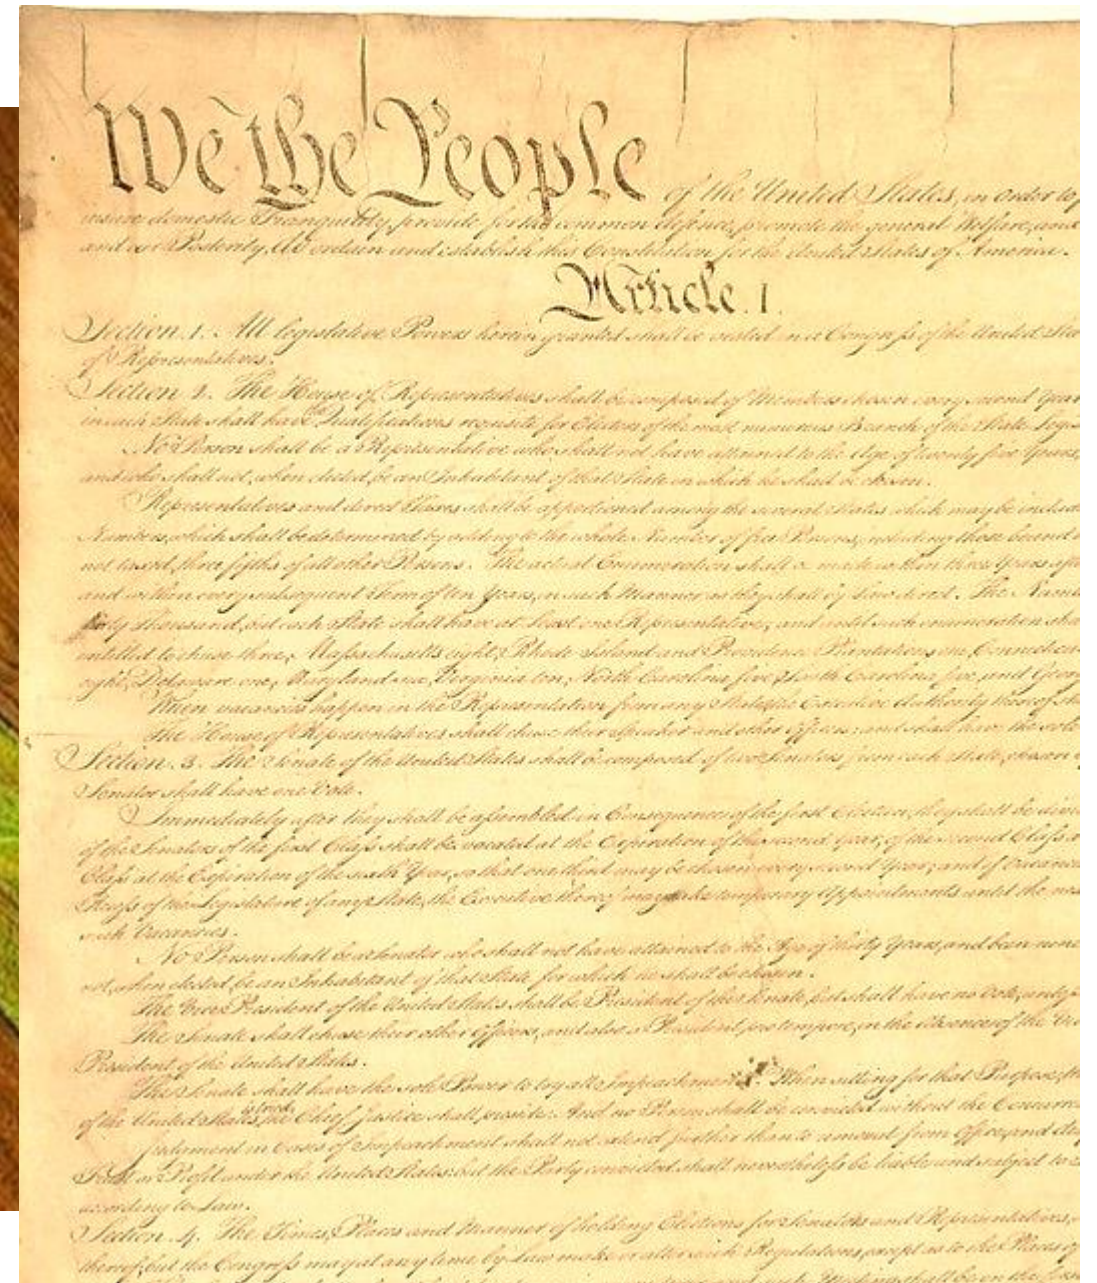 We the People of the United States, in order to
insure domestic Tranquility, provide for the common defence, promote the general Welfare, and
and our Posterity, do ordain and establish this Constitution for the United States of America.
Article. I.
Section. 1. All legislative Powers herein granted shall be vested in a Congress of the United
of Representatives.
Section. 2. The House of Representatives shall be composed of Members chosen every second Year
in each State shall have the Qualifications requisite for Electors of the most numerous Branch of the State
No Person shall be a Representative who shall not have attained to the Age of twenty five Years,
and who shall not, when elected, be an Inhabitant of that State in which he shall be chosen.
Representatives and direct Taxes shall be apportioned among the several States which may be
Numbers, which shall be determined by adding to the whole Number of free Persons, including those bound
not taxed, three fifths of all other Persons. The actual Enumeration shall be made within three Years
and within every subsequent Term of ten Years, in such Manner as they shall by Law direct. The
thirty Thousand, but each State shall have at Least one Representative; and until such enumeration
entitled to chuse three, Massachusetts eight, Rhode Island and Providence Plantations one,
eight, Delaware one, Maryland six, Virginia ten, North Carolina five, South Carolina five, and
When vacancies happen in the Representation from any State, the Executive Authority thereof
The House of Representatives shall chuse their Speaker and other Officers; and shall have the sole
Section. 3. The Senate of the United States shall be composed of two Senators from each State, chosen
Senator shall have one Vote.
Immediately after they shall be assembled in Consequence of the first Election, they shall be
of the Senators of the first Class shall be vacated at the Expiration of the second Year, of the second Class
Class at the Expiration of the sixth Year, so that one third may be chosen every second Year; and if
Recess of the Legislature of any State, the Executive thereof may make temporary Appointments until the
such Vacancies.
No Person shall be a Senator who shall not have attained to the Age of thirty Years, and been
not, when elected, be an Inhabitant of that State for which he shall be chosen.
The Vice President of the United States shall be President of the Senate, but shall have no Vote,
The Senate shall chuse their other Officers, and also a President pro tempore, in the Absence of the
President of the United States.
The Senate shall have the sole Power to try all Impeachments. When sitting for that Purpose,
of the United States is tried, the Chief Justice shall preside: And no Person shall be convicted without the
Judgment in Cases of Impeachment shall not extend further than to removal from Office, and
Trust or Profit under the United States: but the Party convicted shall nevertheless be liable and subject to
according to Law.
Section. 4. The Times, Places and Manner of holding Elections for Senators and Representatives,
thereof; but the Congress may at any time by Law make or alter such Regulations, except as to the Places of